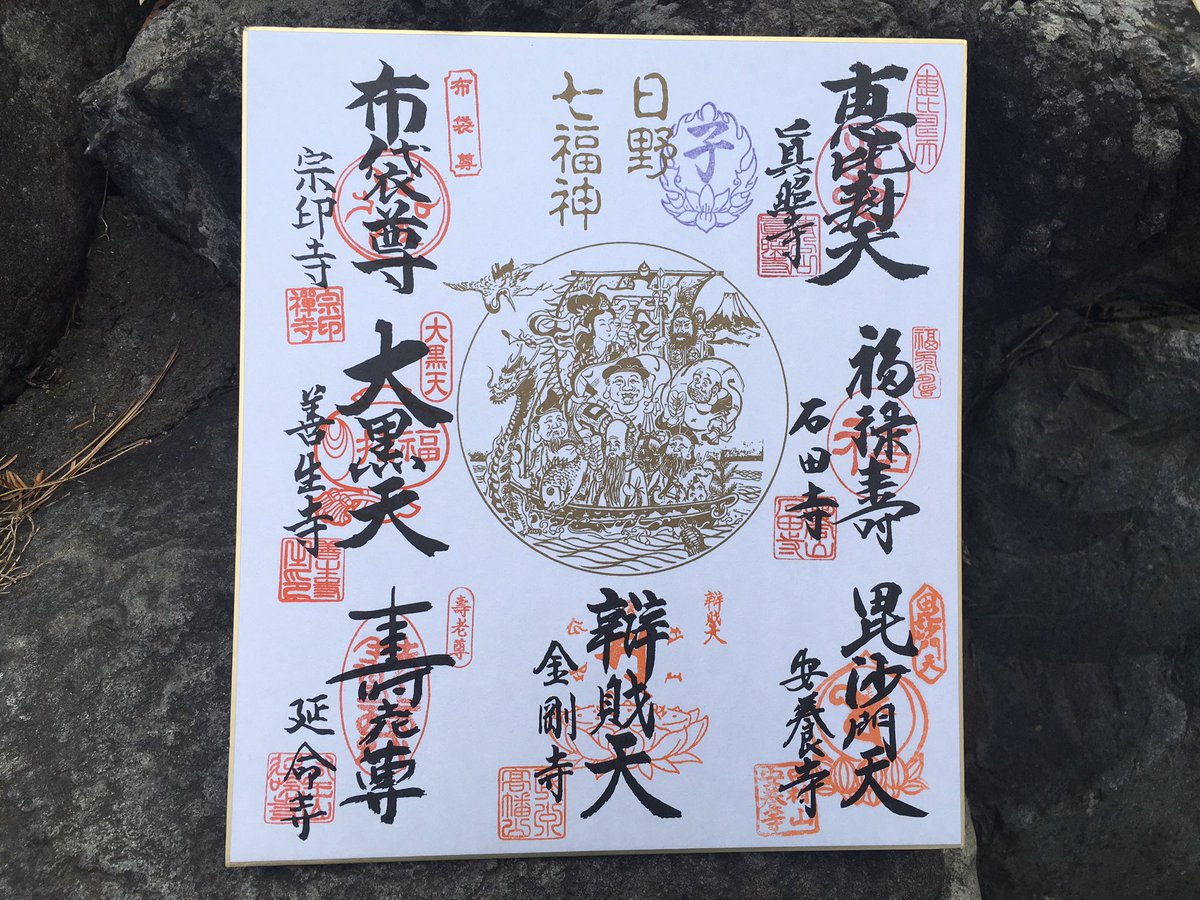 日野
七福神
子
恵比寿天
眞照寺
福禄寿
石田寺
毘沙門天
毘沙門天
安養寺
辨財天
辨財天
金剛寺
布袋尊
布袋尊
宗印寺
宗印禪寺
大黒天
大黒天
福
善生寺
壽老尊
寿老尊
延命寺